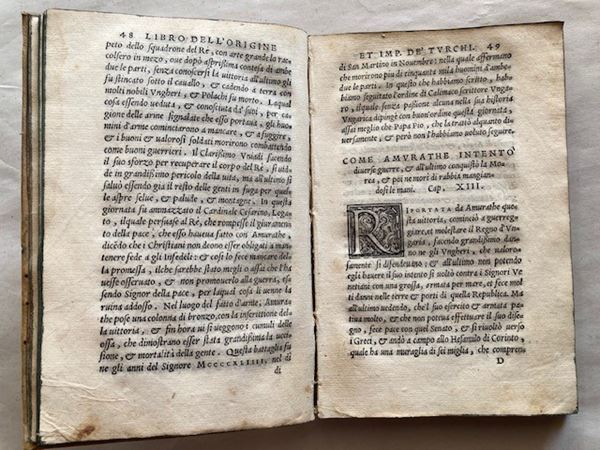 48 LIBRO DELL'ORIGINE
peto dello squadrone del Rè, con arte grande lo rac-
colsero in mezo, oue dopò asprissima contesa di ambe
due le parti, senza conoscersi la uittoria all'ultimo gli
fu stincato sotto il cauallo, & cadendo à terra con
molti nobili Vngheri, & Polachi fu morto. La qual
cosa essendo ueduta, & conosciuta da' suoi, per ca-
gione delle arme signalate che esso portaua, gli huo
mini d'arme cominciarono à mancare, & à fuggire,
& i buoni & ualorosi soldati morirono combattendo
come buoni guerrieri. Il Clarissimo Vniadi facendo
il suo sforzo per recuperare il corpo del Rè, si uid-
de in grandissimo pericolo della uita, ma all'ultimo si
saluò essendo già il resto delle genti in fuga per quel-
le aspre selue, & palude, & montagne. In questa
giornata fu ammazzato il Cardinale Cesarino, Lega-
to, ilquale persuase al Rè, che rompesse il giuramen-
to della pace, che esso haueua fatto con Amurathe,
dicẽdo che i Christiani non deono esser obligati à man-
tenere fede à gli infedeli: & così lo fece mancare del
la promessa, ilche sarebbe stato meglio d'assai che l'ha
uesse osseruato, & non promouerlo alla guerra, es-
sendo Signor della pace, per laqual cosa il uenne la
ruina addosso. Nel luogo del fatto d'arme, Amura-
the pose una colonna di bronzo, con la inscrittione del-
la uittoria, & fin hora ui si ueggono: cumuli delle
ossa, che dimostrano esser stata grandissima la ucci-
sione, & mortalità della gente. Questa battaglia fu
ne gli anni del Signore MCCCCXLIIII, nel dì
di
ET IMP. DE' TVRCHI. 49
di San Martino in Nouembre: nella quale affermano
che morirono più di cinquanta mila huomini d'ambe-
due le parti. In questo che habbiamo scritto, habbia-
mo seguitato l'ordine di Calimaco scrittore Vnga-
ro, ilqual senza passione alcuna nella sua historia
Vngarica dipinge con buon'ordine questa giornata,
assai meglio che Papa Pio, che la trattò alquanto di-
uersamente, & però non l'habbiamo uoluto seguire.
COME AMVRATHE INTENTÒ
diuerse guerre, & all'ultimo conquistò la Mo-
rea, & poi ne morì di rabbia mangian-
dosi le mani. Cap. XIII.
RIPORTATA da Amurathe que
sta uittoria, cominciò à guerreg-
giare, et molestare il Regno d'Vn-
garia, facendo grandissimo dan-
no à gli Vngheri, che ualoro-
samente si difendeuano; & all'ultimo non potendo
egli hauere il suo intento si uoltò contra i Signori Ve
netiani con una grossa armata per mare, et fece mol
ti danni nelle terre & porti di quella Republica. Ma
all'ultimo uedendo, che'l suo esercito & armata pa-
tiua molto, & che non poteua effettuare il suo dise-
gno, fece pace con quel Senato, & si riuoltò uerso
i Greci, & andò à campo allo Hesamilo di Corinto,
quale ha una muraglia di sei miglia, che compren-
D